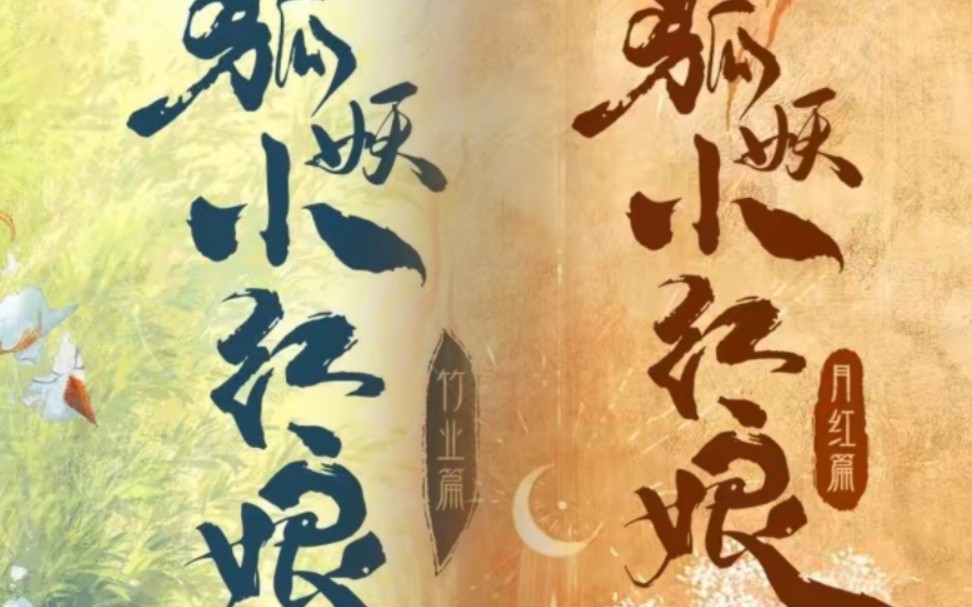 狐妖小红娘
竹业篇
狐妖小红娘
月红篇